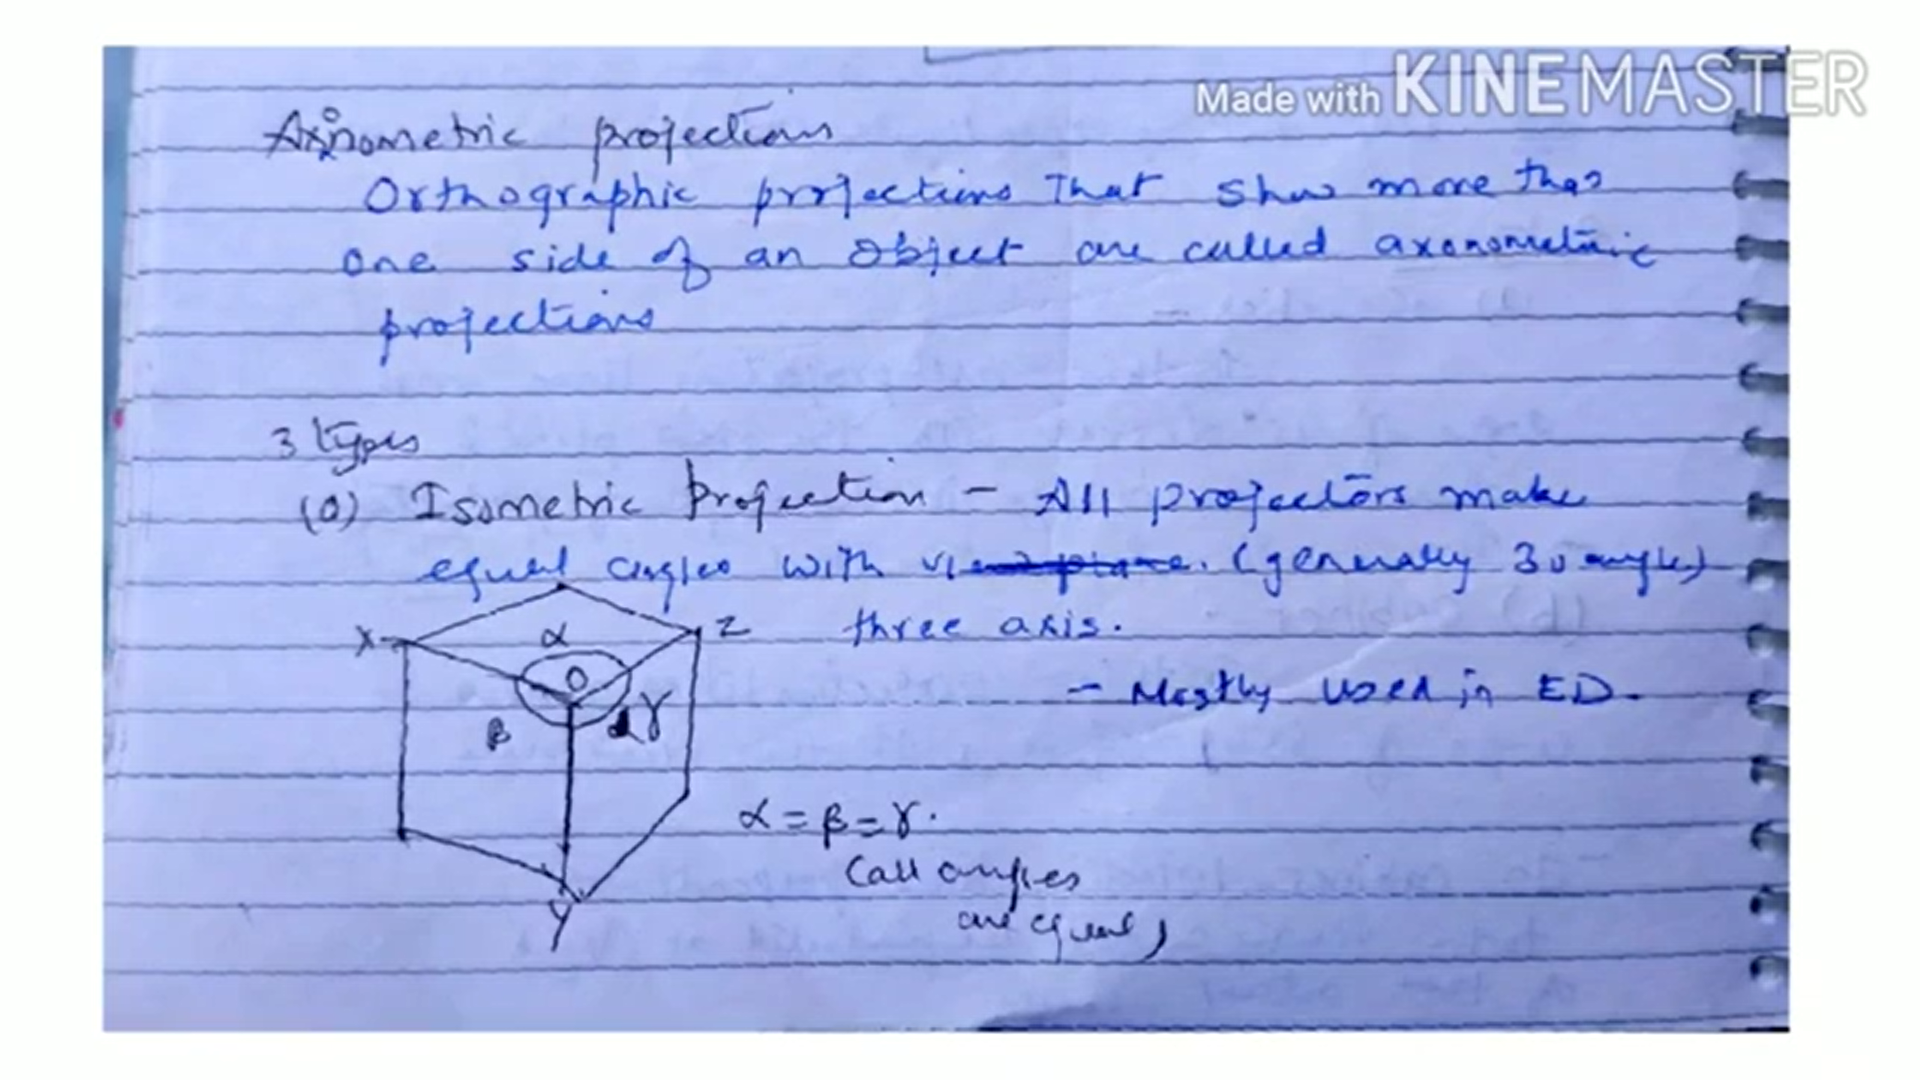 Made with KINEMASTER
Axonometric projections
Orthographic projections that show more than
one side of an object are called axonometric
projections
3 types
(a) Isometric Projection - All projectors make
equal angles with view plane. (generally 30 angle)
three axis.
X α Z
O
β γ
- Mostly used in ED.
α = β = γ.
(all angles
are equal)
Y